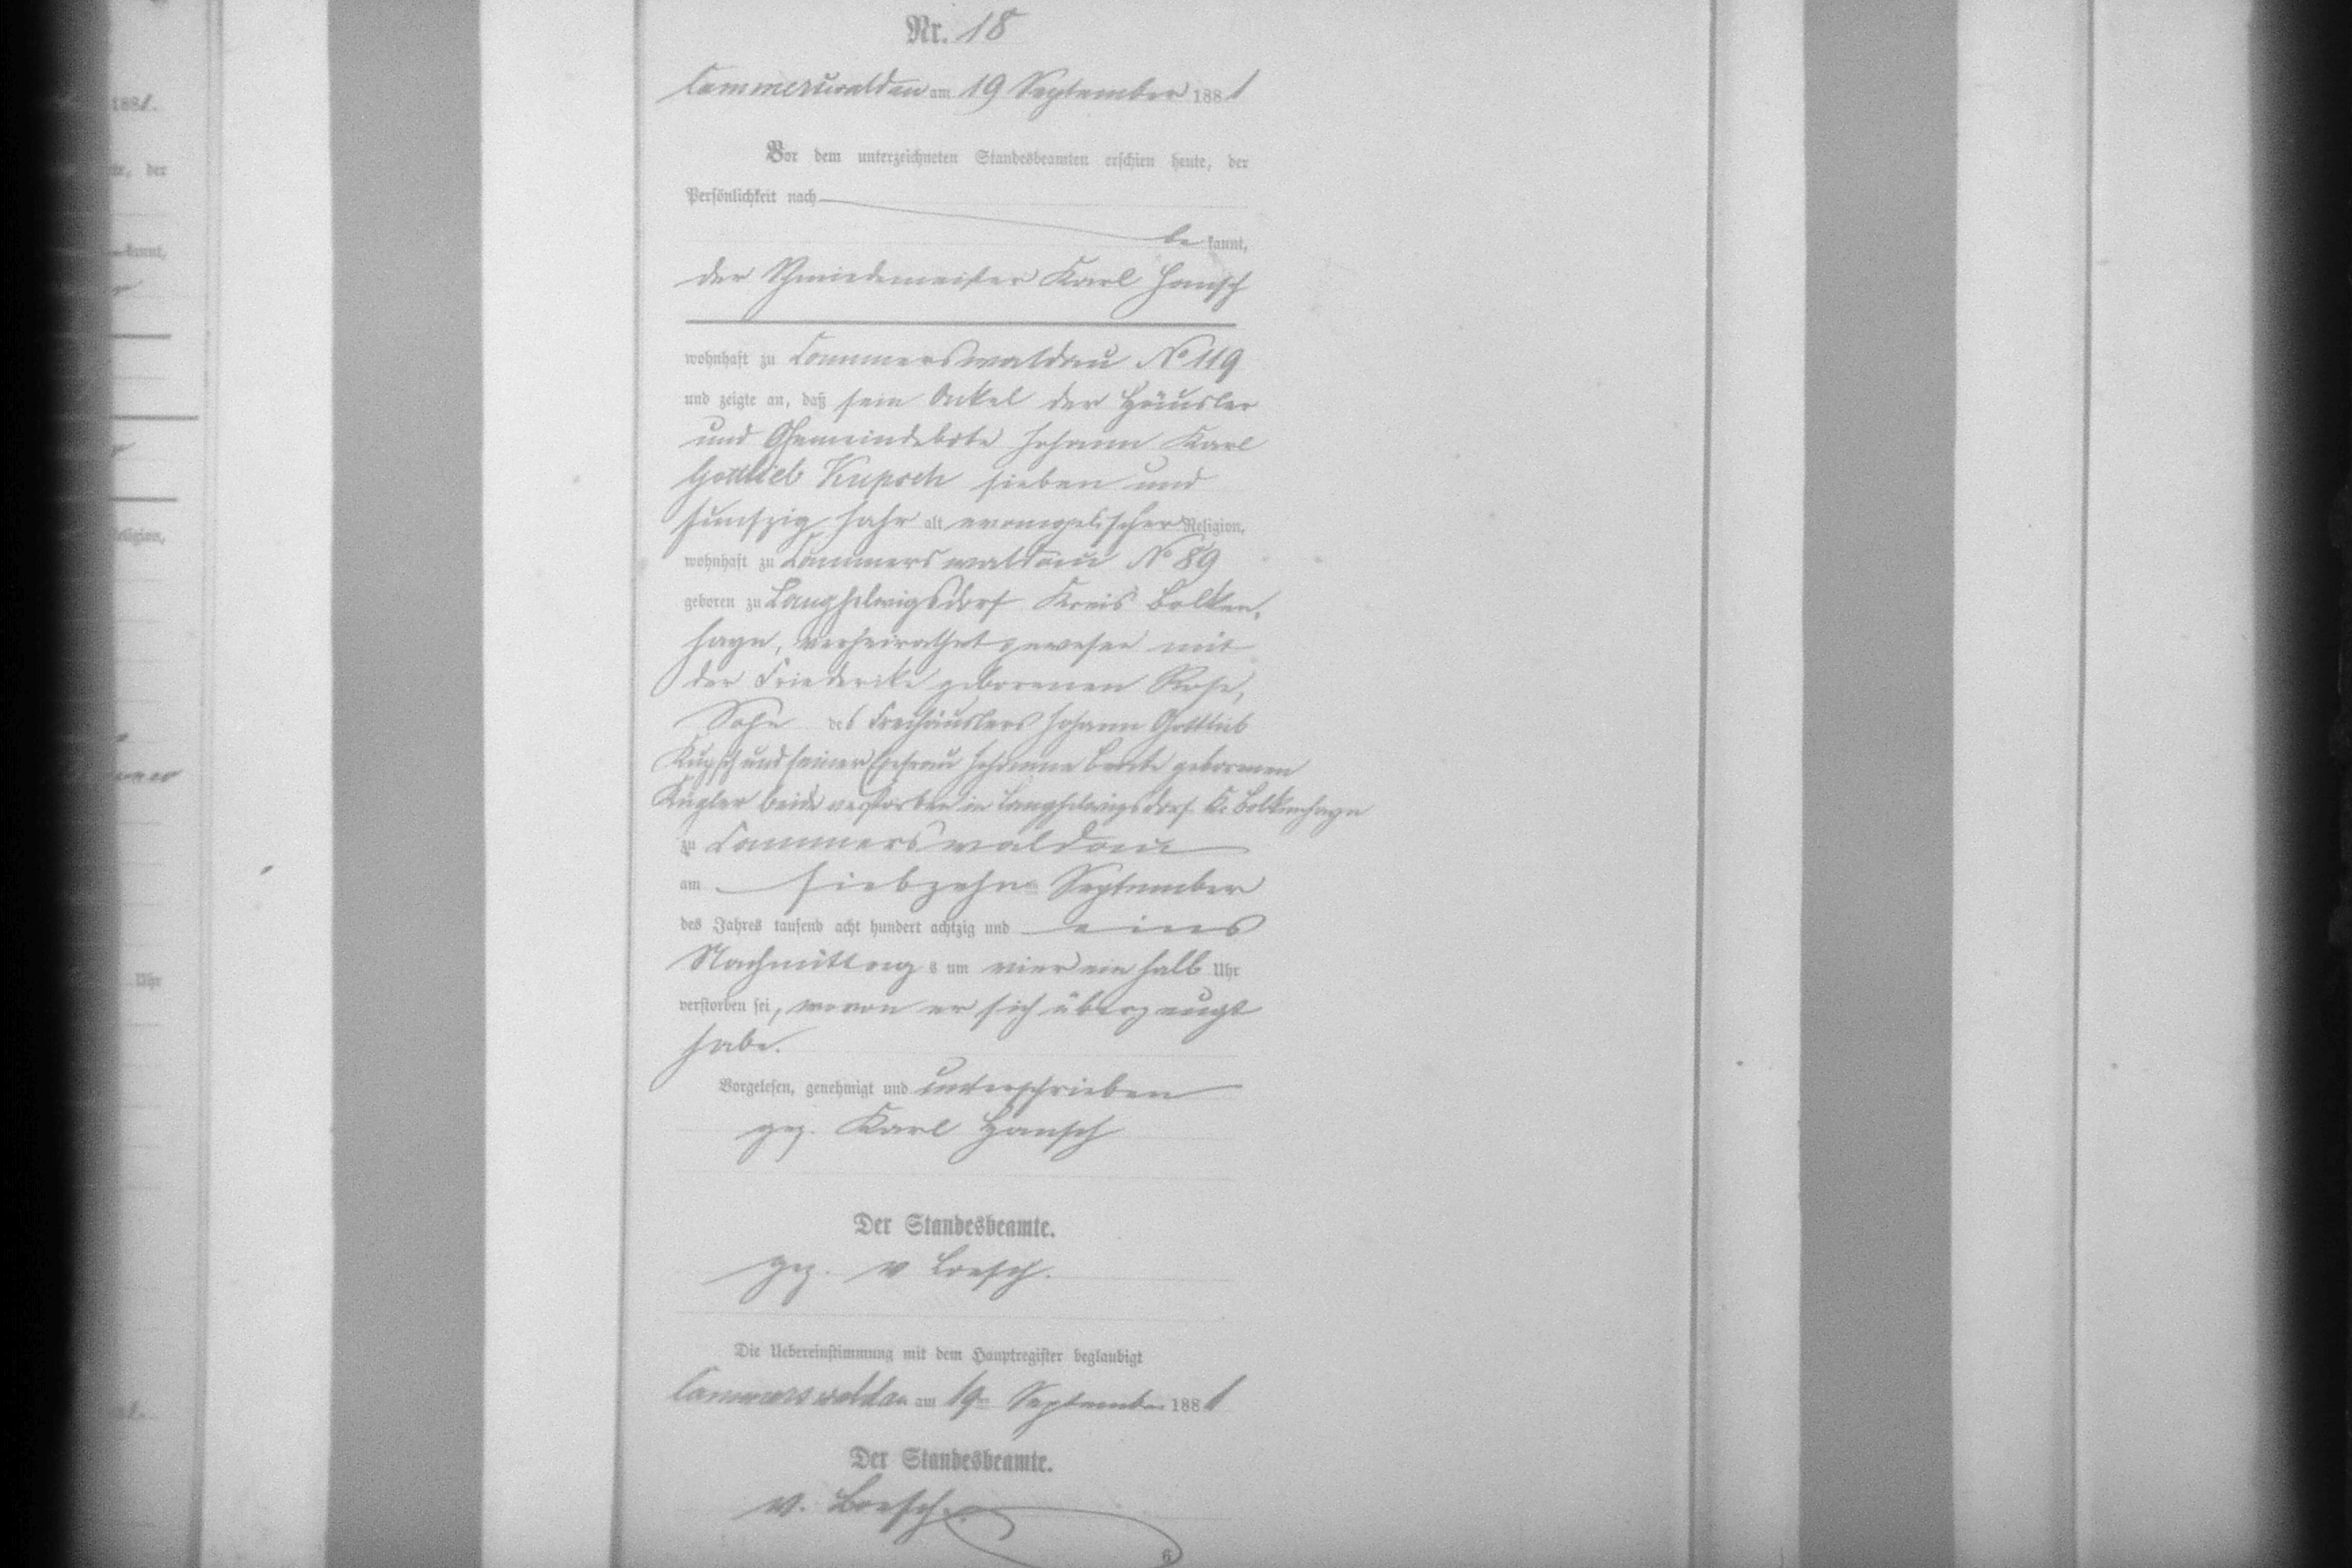 Nr. 18
Cammerswaldau am 19 September 1881
Vor dem unterzeichneten Standesbeamten erschien heute, der
Persönlichkeit nach
be kannt,
der Schmiedemeister Karl Hansch
wohnhaft zu Cammerswaldau No 119
und zeigte an, daß sein Onkel der Häusler
und Gemeindebote Johann Karl
Gottlieb Kupsch sieben und
funfzig Jahr alt evangelischer Religion,
wohnhaft zu Cammerswaldau No 89
geboren zu Langhelwigsdorf Kreis Bolken,
hayn, verheirathet gewesen mit
der Friederike geborenen Rose,
Sohn des Freihäuslers Johann Gottlieb
Kupsch und seiner Ehefrau Johanne geborenen
Kügler beide verstorben in Langhelwigsdorf Kr Bolkenhayn
zu Cammerswaldau
am siebzehn ten September
des Jahres tausend acht hundert achtzig und eins
Nachmittag s um vier ein halb Uhr
verstorben sei, wovon er sich überzeugt
habe.
Vorgelesen, genehmigt und unterschrieben
gez. Karl Hansch
Der Standesbeamte.
gez. v Loesch.
Die Uebereinstimmung mit dem Hauptregister beglaubigt
Cammerswaldau am 19ten September 1881
Der Standesbeamte.
v. Loesch.
6